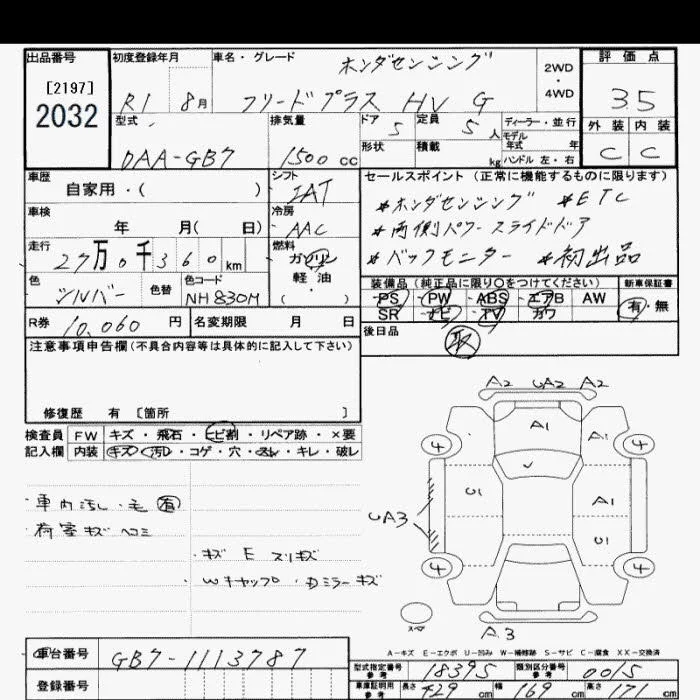 出品番号
[2197]
2032
初度登録年月
R1 8月
車名・グレード
ホンダセンシング
フリードプラス HV G
2WD
・
4WD
評価点
3.5
外装 内装
C C
型式
DAA-GB7
排気量
1500 cc
ドア 5
定員 5 人
ディーラー・並行
モデル年式 年
形状
積載 kg
ハンドル 左・右
車歴
自家用・( )
シフト
IAT
車検
年 月( 日)
冷房
AAC
走行
27万0千360 km
燃料
ガソリン
軽油
( ・ )
色
シルバー
色替
色コード
NH830M
セールスポイント(正常に機能するものに限ります)
*ホンダセンシング *ETC
*両側パワースライドドア
*バックモニター *初出品
装備品(純正品に限り○をつけてください)
PS PW ABS エアB AW
SR ナビ TV カワ
新車保証書
有・無
後日品
取
R券 10,060 円
名変期限 月 日
注意事項申告欄(不具合内容等は具体的に記入して下さい)
修復歴 有 [箇所 ]
検査員記入欄
FW キズ・飛石・ヒビ割・リペア跡・×要
内装 キズ・汚レ・コゲ・穴・スレ・キレ・破レ
・車内汚レ・毛 有
・荷室キズ ヘコミ
・キズ E スリキズ
・Wキャップ ・Dミラーキズ
A2 UA2 A2
A1
A1
4 4
U1
A1
UA3
U1
4 4
スペア
A3
A-キズ E-エクボ U-凹み W-補修跡 S-サビ C-腐食 XX-交換済
車台番号 GB7-1113787
登録番号
型式指定番号 参考 18395
類別区分番号 参考 0015
車庫証明用 参考 長さ 429 cm 幅 169 cm 高さ 171 cm